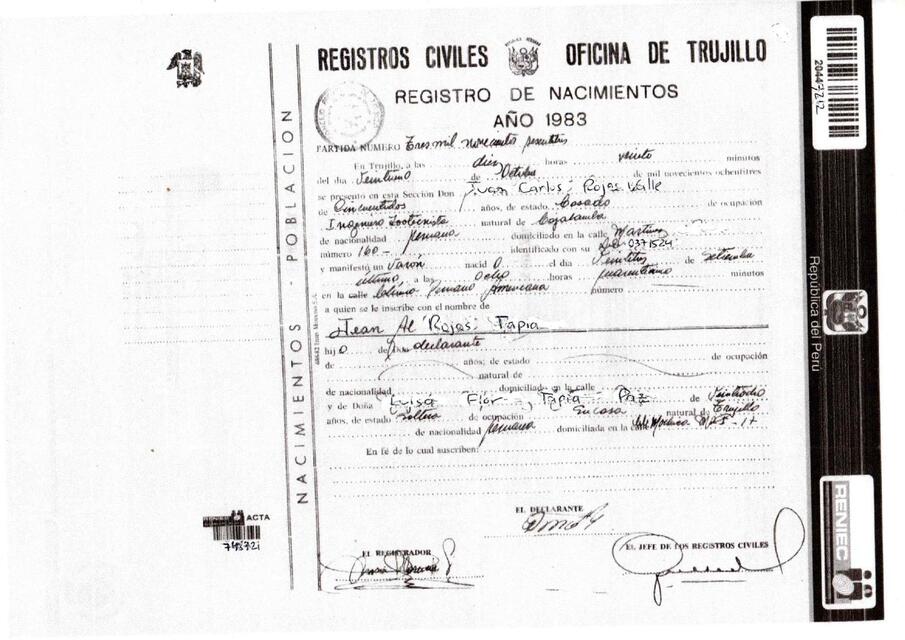 REGISTROS CIVILES OFICINA DE TRUJILLO
REGISTRO DE NACIMIENTOS
AÑO 1983
PARTIDA NÚMERO Tres mil novecientos
En Trujillo, a las diez horas veinte minutos
del día Veintiuno de Octubre de mil novecientos ochentitres
se presentó en esta Sección Don Juan Carlos Rojas Valle
de Cincuentidos años, de estado Casado de ocupación
Ingeniero Zootecnista natural de Cajabamba
de nacionalidad peruana domiciliado en la calle
número 160 - identificado con su 0371524
y manifestó un Varón nacido el día Veintitres de setiembre
último a las Ocho horas minutos
en la calle Clínica Peruano Americana número
a quien se le inscribe con el nombre de
Jean Al Rojas Tapia
hijo del declarante
de años; de estado de ocupación
natural de
de nacionalidad domiciliado en la calle
y de Doña Luisa Flor Tapia Paz de Veintiocho
años, de estado Soltera de ocupación Su casa natural de Trujillo
de nacionalidad peruana domiciliada en la calle
En fé de lo cual suscriben:
EL DECLARANTE
EL REGISTRADOR
EL JEFE DE LOS REGISTROS CIVILES
NACIMIENTOS - POBLACION
ACTA
República del Perú
RENIEC